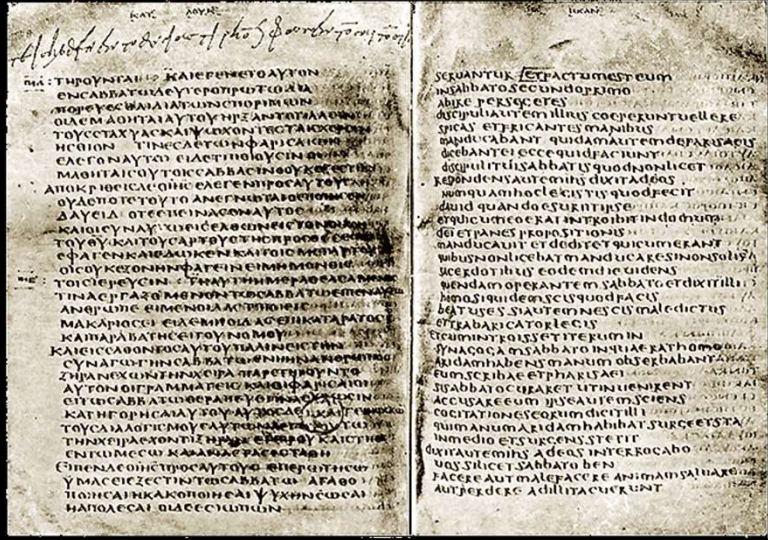 ΤΗΡΟΥΝΤΑΙ ΚΑΙΕΓΕΝΕΤΟΑΥΤΟΝ
ΕΝCΑΒΒΑΤΩΔΕΥΤΕΡΟΠΡΩΤΩΔΙΑ
ΠΟΡΕΥΕCΘΑΙΔΙΑΤΩΝCΠΟΡΙΜΩΝ
ΟΙΔΕΜΑΘΗΤΑΙΑΥΤΟΥΗΡΞΑΝΤΟΤΙΛΛΕΙΝ
ΤΟΥCCΤΑΧΥΑCΚΑΙΨΩΧΟΝΤΕCΤΑΙCΧΕΡCΙΝ
ΗCΘΙΟΝ ΤΙΝΕCΔΕΤΩΝΦΑΡΙCΑΙΩΝ
ΕΛΕΓΟΝΑΥΤΩΕΙΔΕΤΙΠΟΙΟΥCΙΝΟΙ
ΜΑΘΗΤΑΙCΟΥΤΟΙCCΑΒΒΑCΙΝΟΟΥΚΕΞΕCΤΙΝ
ΑΠΟΚΡΙΘΕΙCΔΕΟΙΗCΕΛΕΓΕΝΠΡΟCΑΥΤΟΥC
ΟΥΔΕΠΟΤΕΤΟΥΤΟΑΝΕΓΝΩΤΑΙΟΕΠΟΙΗCΕΝ
ΔΑΥΕΙΔ ΟΤΕΕΠΕΙΝΑCΕΝΑΥΤΟC
ΚΑΙΟΙCΥΝΑΥΤΩ ΕΙCΕΛΘΩΝΕΙCΤΟΝΟΙΚΟΝ
ΤΟΥΘΥΚΑΙΤΟΥCΑΡΤΟΥCΤΗCΠΡΟΘΕCΕΩC
ΕΦΑΓΕΝΚΑΙΕΔΩΚΕΝΚΑΙΤΟΙCΜΕΤΑΥΤΟΥ
ΟΙCΟΥΚΕΞΟΝΗΝΦΑΓΕΙΝΕΙΜΗΜΟΝΟΙC
ΤΟΙCΙΕΡΕΥCΙΝ ΤΗΑΥΤΗΗΜΕΡΑΘΕΑCΑΜΕΝΟC
ΤΙΝΑΕΡΓΑΖΟΜΕΝΟΝΤΩCΑΒΒΑΤΩΕΙΠΕΝΑΥΤΩ
ΑΝΘΡΩΠΕ ΕΙΜΕΝΟΙΔΑCΤΙΠΟΙΕΙC
ΜΑΚΑΡΙΟCΕΙ ΕΙΔΕΜΗΟΙΔΑCΕΠΙΚΑΤΑΡΑΤΟC
ΚΑΙΠΑΡΑΒΑΤΗCΕΙΤΟΥΝΟΜΟΥ
ΚΑΙΕΙCΕΛΘΟΝΤΟCΑΥΤΟΥΠΑΛΙΝΕΙCΤΗΝ
CΥΝΑΓΩΓΗΝCΑΒΒΑΤΩΕΝΗΗΝΑΝΘΡΩΠΟC
ΞΗΡΑΝΕΧΩΝΤΗΝΧΕΙΡΑ ΠΑΡΕΤΗΡΟΥΝΤΟ
ΑΥΤΟΝΟΙΓΡΑΜΜΑΤΕΙC ΚΑΙΟΙΦΑΡΙCΑΙΟΙ
ΕΙΤΩCΑΒΒΑΤΩΘΕΡΑΠΕΥΕΙΙΝΑΕΥΡΩCΙΝ
ΚΑΤΗΓΟΡΗCΑΙΑΥΤΟΥ ΑΥΤΟCΔΕ
ΤΟΥCΔΙΑΛΟΓΙCΜΟΥCΑΥΤΩΝ
ΤΗΝΧΕΙΡΑΕΧΟΝΤΙΞΗΡΑΝ ΕΓΕΙΡΟΥ ΚΑΙCΤΗΘΙ
ΕΝΤΩΜΕCΩ ΚΑΙΑΝΑCΤΑCΕCΤΑΘΗ
ΕΙΠΕΝΔΕΟΙΗCΠΡΟCΑΥΤΟΥC ΕΠΕΡΩΤΗCΩ
ΥΜΑCΕΙΕΞΕCΤΙΝΤΩCΑΒΒΑΤΩ ΑΓΑΘΟ
ΠΟΙΗCΑΙΗΚΑΚΟΠΟΙΗCΑΙ ΨΥΧΗΝCΩCΑΙ
ΗΑΠΟΛΕCΑΙ ΟΙΔΕΕCΙΩΠΩΝ
SERUANTUR ETFACTUMESTEUM
INSABBATOSECUNDOPRIMO
ABIRE PERSEGETES
DISCIPULIAUTEMILLIUS COEPERUNTUELLERE
SPICAS ETFRICANTESMANIBUS
MANDUCABANT QUIDAMAUTEMDEFARISAEIS
DICEBANTEIECCEQUIDFACIUNT
DISCIPULITUISABBATISQUODNONLICET
RESPONDENSAUTEMIHS DIXITADEOS
NUMQUAMHOCLEGISTISQUODFECIT
DAUID QUANDOESURIITIPSE
ETQUICUMEOERAT INTROIBITINDOMUM
DEIETPANES PROPOSITIONIS
MANDUCAUIT ETDEDITETQUICUMERANT
QUIBUSNONLICEBATMANDUCARESINONSOLIS
SACERDOTIBUS EODEMDIEUIDENS
QUENDAMOPERANTEM SABBATOETDIXITILLI
HOMOSIQUIDEMSCISQUODFACIS
BEATUSES SIAUTEMNESCISMALEDICTUS
ETTRABARICATORLEGIS
ETCUMINTROISSETITERUMIN
SYNAGOGAMSABBATO INQUAERATHOMO
ARIDAMHABENSMANUM OBSERBABANT
EUMSCRIBAEETPHARISAEI
SISABBATOCURARET UTINUENIRENT
ACCUSAREEUM IPSEAUTEMSCIENS
COGITATIONESEORUMDICITILLI
QUIMANUMARIDAMHABEBATSURGEETSTA
INMEDIO ETSURGENSSTETIT
DIXITAUTEMIHS ADEOS INTERROGABO
UOSSILICETSABBATOBEN
FACERE AUTMALEFACERE ANIMAMSALUARE
AUTPERDERE ADILLITACUERUNT